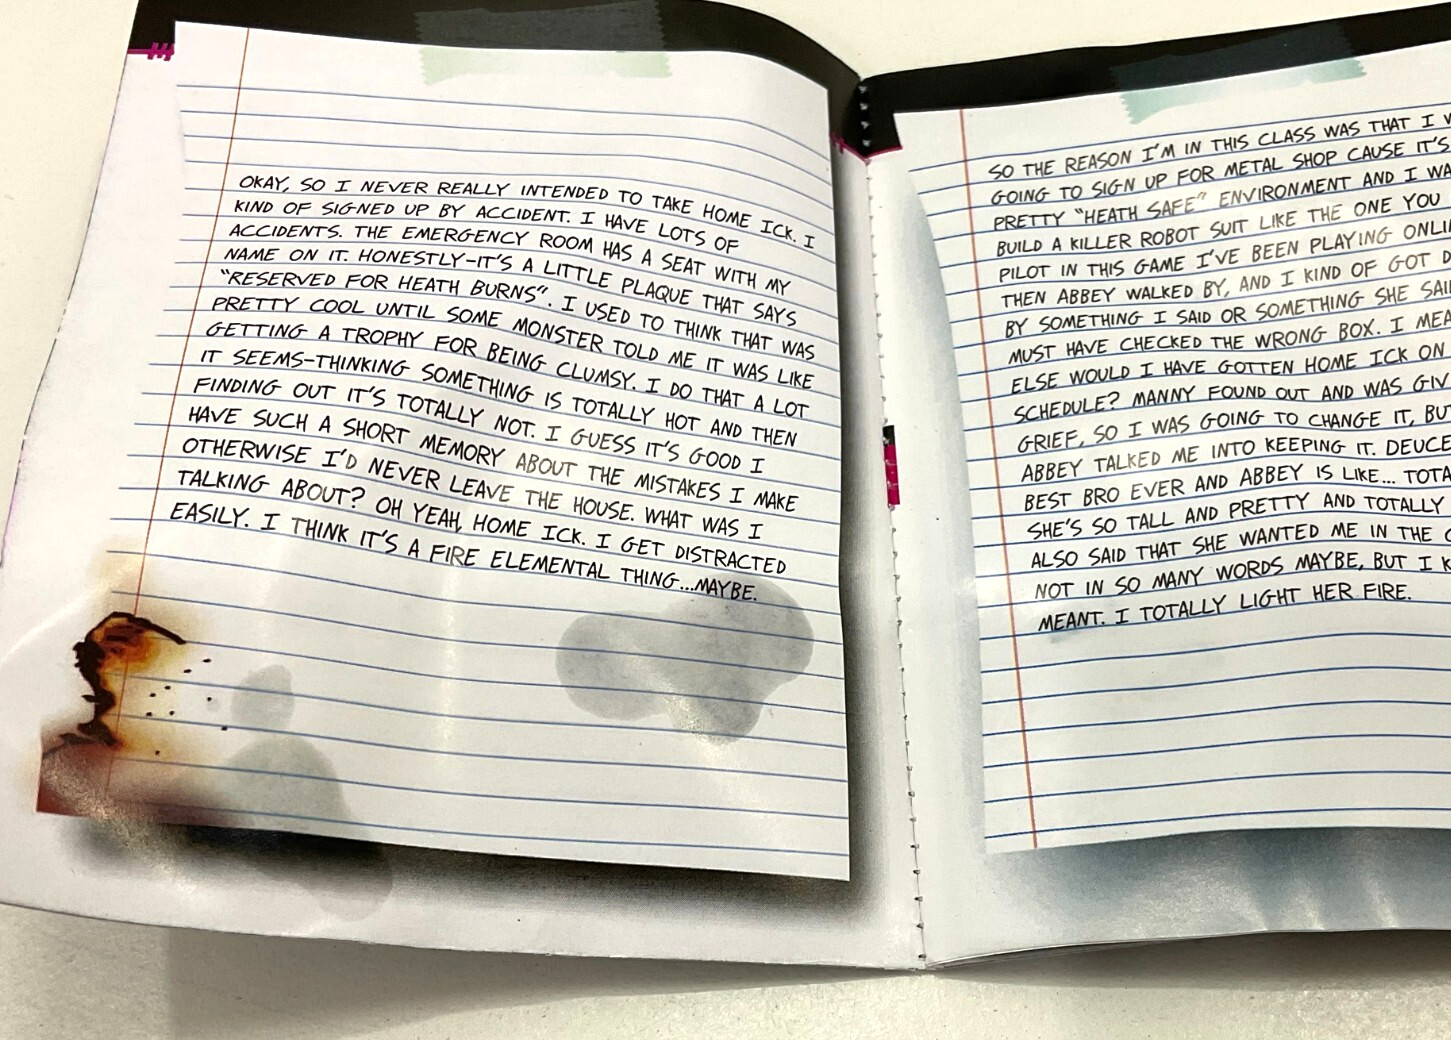 OKAY, SO I NEVER REALLY INTENDED TO TAKE HOME ICK. I
KIND OF SIGNED UP BY ACCIDENT. I HAVE LOTS OF
ACCIDENTS. THE EMERGENCY ROOM HAS A SEAT WITH MY
NAME ON IT. HONESTLY-IT'S A LITTLE PLAQUE THAT SAYS
"RESERVED FOR HEATH BURNS". I USED TO THINK THAT WAS
PRETTY COOL UNTIL SOME MONSTER TOLD ME IT WAS LIKE
GETTING A TROPHY FOR BEING CLUMSY. I DO THAT A LOT
IT SEEMS-THINKING SOMETHING IS TOTALLY HOT AND THEN
FINDING OUT IT'S TOTALLY NOT. I GUESS IT'S GOOD I
HAVE SUCH A SHORT MEMORY ABOUT THE MISTAKES I MAKE
OTHERWISE I'D NEVER LEAVE THE HOUSE. WHAT WAS I
TALKING ABOUT? OH YEAH, HOME ICK. I GET DISTRACTED
EASILY. I THINK IT'S A FIRE ELEMENTAL THING...MAYBE.
SO THE REASON I'M IN THIS CLASS WAS THAT I
GOING TO SIGN UP FOR METAL SHOP CAUSE IT'S
PRETTY "HEATH SAFE" ENVIRONMENT AND I
BUILD A KILLER ROBOT SUIT LIKE THE ONE YOU
PILOT IN THIS GAME I'VE BEEN PLAYING
THEN ABBEY WALKED BY, AND I KIND OF GOT
BY SOMETHING I SAID OR SOMETHING SHE
MUST HAVE CHECKED THE WRONG BOX. I
ELSE WOULD I HAVE GOTTEN HOME ICK ON
SCHEDULE? MANNY FOUND OUT AND WAS
GRIEF, SO I WAS GOING TO CHANGE IT,
ABBEY TALKED ME INTO KEEPING IT.
BEST BRO EVER AND ABBEY IS LIKE...
SHE'S SO TALL AND PRETTY AND TOTALLY
ALSO SAID THAT SHE WANTED ME IN THE
NOT IN SO MANY WORDS MAYBE, BUT I
MEANT. I TOTALLY LIGHT HER FIRE.